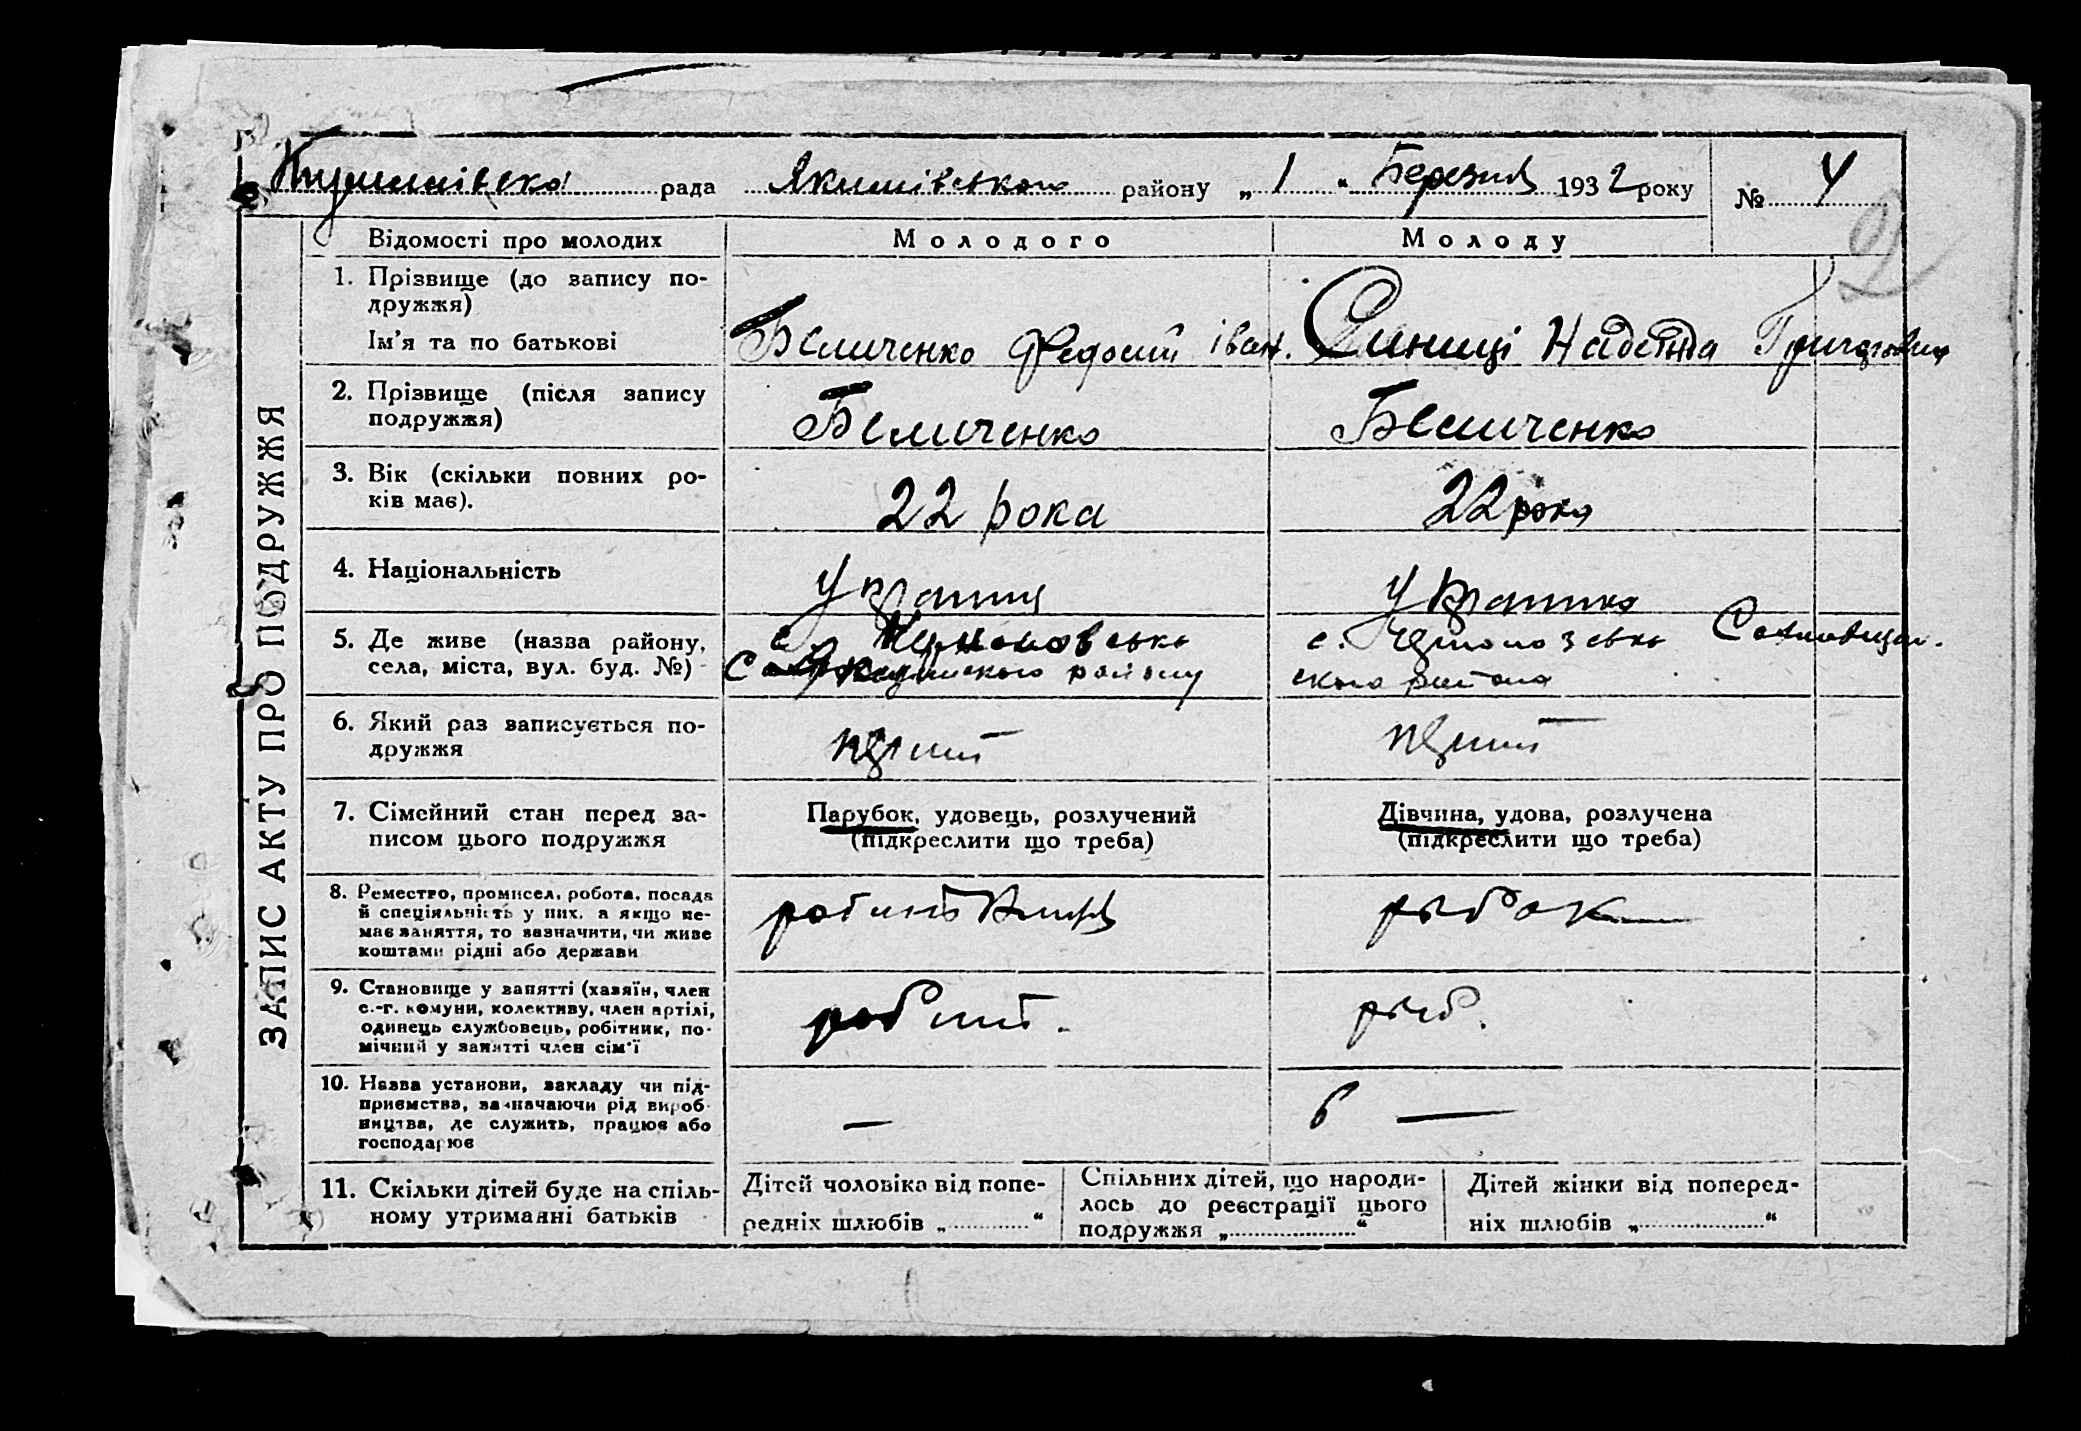 рада Якимівського району „ 1 “ Березня 1932 року № 4
2
ЗАПИС АКТУ ПРО ПОДРУЖЖЯ
Відомості про молодих Молодого Молоду
1. Прізвище (до запису по-
дружжя)
Ім'я та по батькові Беличенко Федосій Іван. Синиці Надежда Григоровна
2. Прізвище (після запису
подружжя) Беличенко Беличенко
3. Вік (скільки повних ро-
ків має). 22 рока 22 рока
4. Національність Українц Українка
5. Де живе (назва району,
села, міста, вул. буд. №) с. району с.
6. Який раз записується по-
дружжя перший перший
7. Сімейний стан перед за-
писом цього подружжя
Парубок, удовець, розлучений
(підкреслити що треба)
Дівчина, удова, розлучена
(підкреслити що треба)
8. Ремество, промисел, робота, посада
й спеціяльність у них, а якщо не-
має заняття, то зазначити, чи живе
коштами рідні або держави
9. Становище у занятті (хазяїн, член
с.-г. комуни, колективу, член артілі,
одинець службовець, робітник, по-
мічний у занятті член сім'ї
робит. роб.
10. Назва установи, закладу чи під-
приємства, зазначаючи рід вироб-
ництва, де служить, працює або
господарює
— б —
11. Скільки дітей буде на спіль-
ному утриманні батьків
Дітей чоловіка від попе-
редніх шлюбів „ “
Спільних дітей, що народи-
лось до реєстрації цього
подружжя „ “
Дітей жінки від поперед-
ніх шлюбів „ “